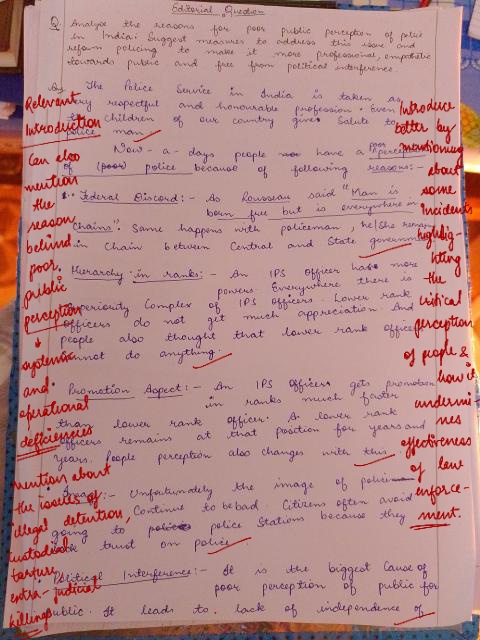 Editorial Question
Q. Analyse the reasons for poor public perception of police
in India. Suggest measures to address this issue and
reform policing to make it more professional, empathetic
towards public and free from political interference.
The Police Service in India is taken as
very respectful and honourable profession. Even
the children of our country gives Salute to
police man.
Now-a-days people have a poor perception
of (poor) police because of following reasons:-
Federal Discord:- As Rousseau said "Man is
born free but is everywhere in
Chains". Same happens with policeman, he/She remain
in Chain between Central and State government
Hierarchy in ranks:- An IPS Officer has more
powers. Everywhere there is
Superiority Complex of IPS officers. Lower rank
officers do not get much appreciation. And
people also thought that lower rank officer
cannot do anything.
Promotion Aspect:- An IPS Officer gets promotion
in ranks much faster
than lower rank officer. A lower rank
officers remains at that position for years and
years. People perception also changes with this.
Image:- Unfortunately the image of police
Continue to be bad. Citizens often avoid
going to police Stations because they
trust on police.
Political Interference:- It is the biggest Cause of
poor perception of public for
public. It leads to lack of independence of
Relevent
Introduction
Can also
mention
the
reason
behind
poor
public
perception
↓
systemic
and
operational
defficiencies
mention about
the issues of
illegal detention,
custodial
torture,
extra-judicial
killings
Introduce
better by
mentioning
about
some
incidents
highlig-
hting
the
critical
perception
of people &
how it
undermi
nes
effectiveness
of law
enforce-
ment.